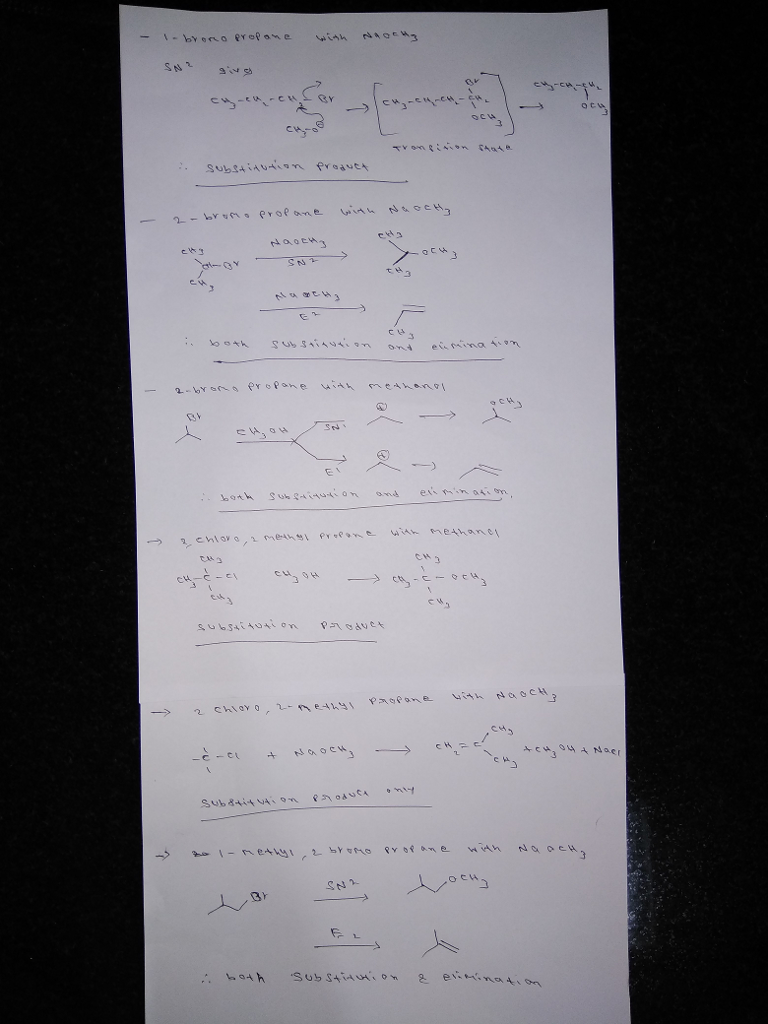 - 1-bromo propane with NaOCH3
SN2 gives
CH3-CH2-CH2-Br → [CH3-CH2-CH2- CH2 Br OCH3] → CH3-CH2-CH2 OCH3
CH3-O⊖
Transition state
∴ substitution product
- 2-bromo propane with NaOCH3
CH3 CH3 CH-Br NaOCH3 SN2 → CH3 CH3 -OCH3
NaOCH3 E2 → CH3
∴ both substitution and elimination
- 2-bromo propane with methanol
Br CH3OH SN1 ⊕ → OCH3
E1 ⊕ →
∴ both substitution and elimination.
→ 2 chloro, 2 methyl propane with methanol
CH3 CH3
CH3-C-Cl CH3OH → CH3-C-OCH3
CH3 CH3
substitution product
→ 2 chloro, 2-methyl propane with NaOCH3
-C-Cl + NaOCH3 → CH2=C CH3 CH3 + CH3OH + NaCl
substitution product only
→ 1-methyl, 2 bromo propane with NaOCH3
Br SN2 → OCH3
E2 →
∴ both substitution & elimination